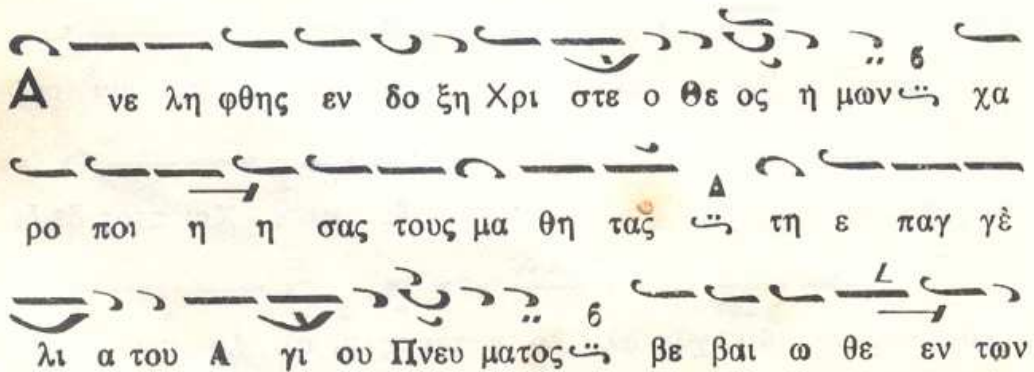 Α νε λη φθης εν δο ξη Χρι στε ο Θε ος ή μων χα
ρο ποι η η σας τους μα θη τας τη ε παγ γὲ
λι α του Α γι ου Πνευ ματος βε βαι ω θε εν των